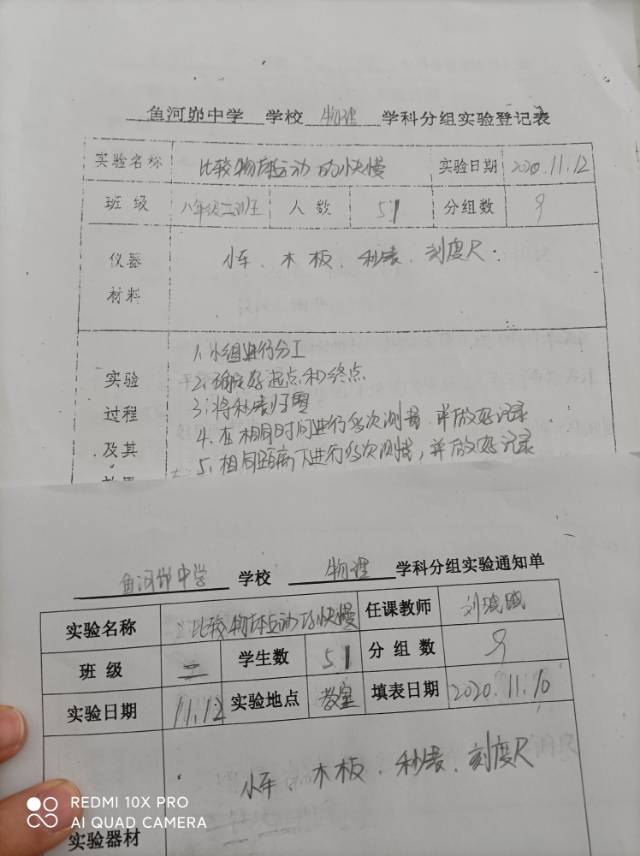 鱼河峁中学 学校 物理 学科分组实验登记表
实验名称 比较物体运动的快慢 实验日期 2020.11.12
班级 八年级二班 人数 51 分组数 9
仪器 小车、木板、秒表、刻度尺.
材料
1.小组进行分工
实验 2.确定好起点和终点
过程 3.将秒表归零
4.在相同时间进行多次测量,并做好记录
及其 5.相同距离下进行多次测试,并做好记录
效果
鱼河峁中学 学校 物理 学科分组实验通知单
实验名称 比较物体运动的快慢 任课教师 刘
班级 二 学生数 51 分组数 9
实验日期 11.12 实验地点 教室 填表日期 2020.11.10
小车、木板、秒表、刻度尺
实验器材
REDMI 10X PRO
AI QUAD CAMERA